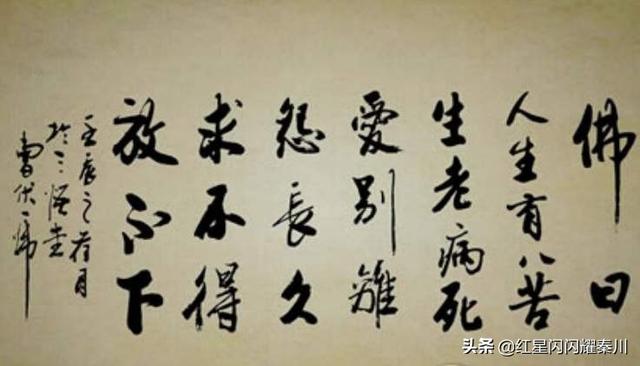 佛曰
人生有八苦
生老病死
愛别離
怨長久
求不得
放不下
壬辰之荷月
於三悟堂
曹伏一師
头条 @红星闪闪耀秦川